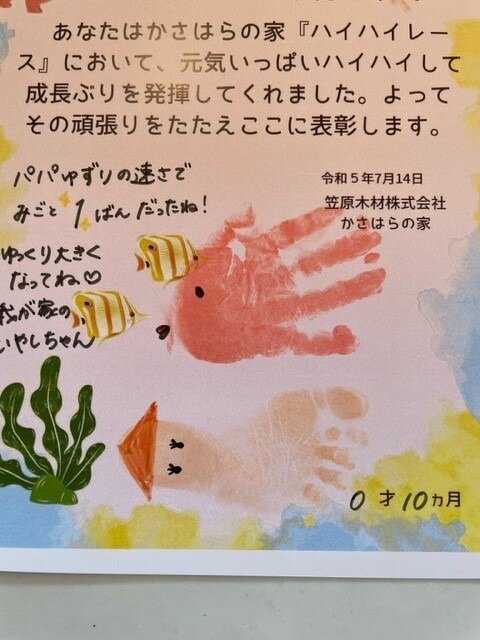 あなたはかさはらの家『ハイハイレー
ス』において、元気いっぱいハイハイして
成長ぶりを発揮してくれました。よって
その頑張りをたたえここに表彰します。
パパゆずりの速さで
みごと1ばんだったね!
ゆっくり大きく
なってね♡
我が家の
いやしちゃん
令和5年7月14日
笠原木材株式会社
かさはらの家
0才10ヵ月